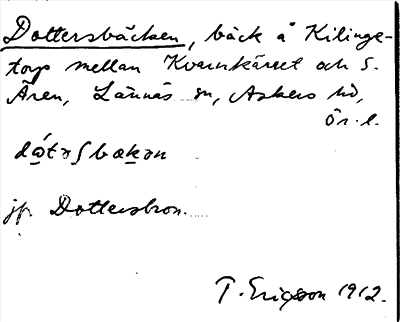 Dottersbäcken, bäck å Kilinge-
torp mellan Kvarnkärret och S.
Ären, Lännäs sn, Askers hd,
Ör. l.
dɷ́təʃbækən
jfr Dottersbron.
T. Ericsson 1912.